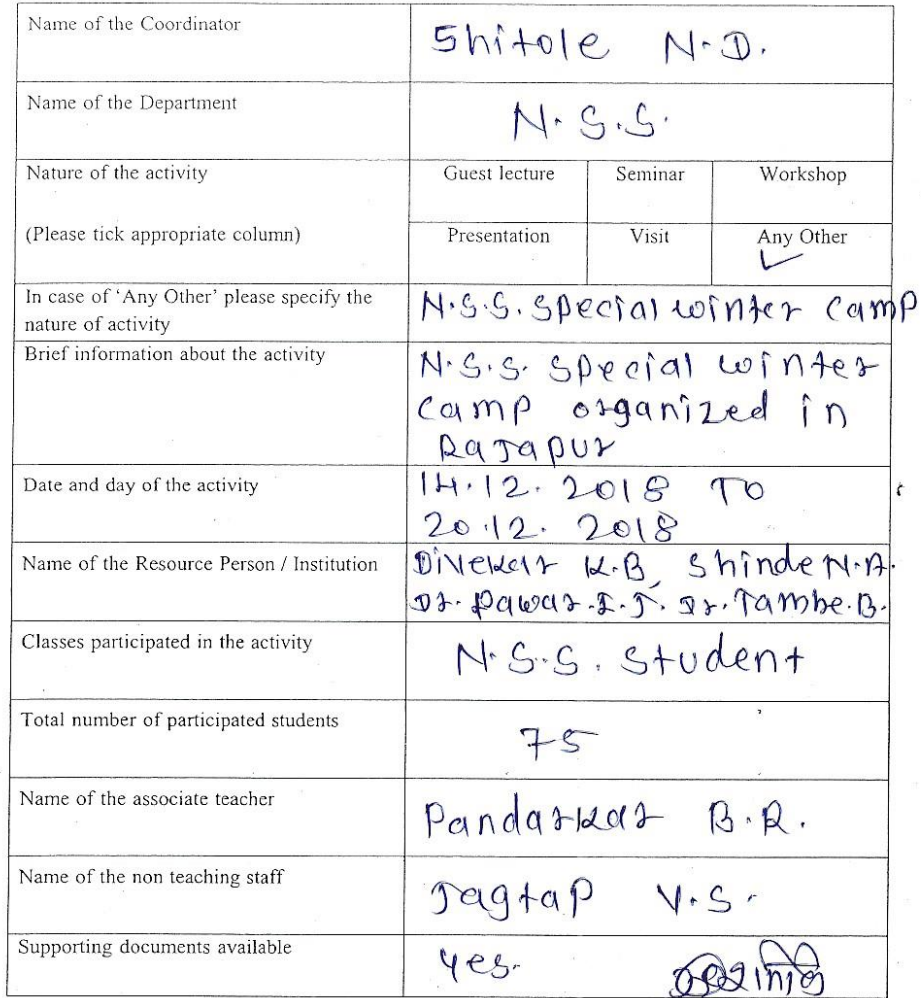 Name of the Coordinator
Shitole N.D.
Name of the Department
N.S.S.
Nature of the activity
Guest lecture Seminar Workshop
(Please tick appropriate column)
Presentation Visit Any Other
In case of 'Any Other' please specify the
nature of activity
N.S.S. Special winter camp
Brief information about the activity
N.S.S. Special winter
camp organized in
Rajapur
Date and day of the activity
14.12.2018 To
20.12.2018
Name of the Resource Person / Institution
Divekar K.B, Shinde N.A.
Dr. Pawar. I. J. Dr. Tambe. B.
Classes participated in the activity
N.S.S. Student
Total number of participated students
75
Name of the associate teacher
Pandarkar B.R.
Name of the non teaching staff
Jagtap V.S.
Supporting documents available
Yes.